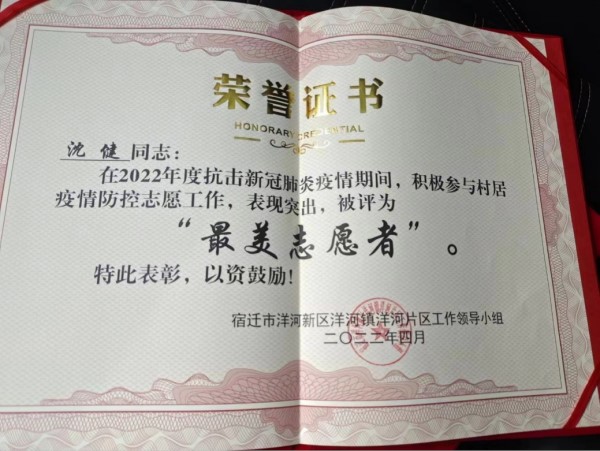 荣誉证书
HONORARY CREDENTIAL
沈健同志：
在2022年度抗击新冠肺炎疫情期间，积极参与村居
疫情防控志愿工作，表现突出，被评为
“最美志愿者”。
特此表彰，以资鼓励！
宿迁市洋河新区洋河镇洋河片区工作领导小组
二〇二二年四月